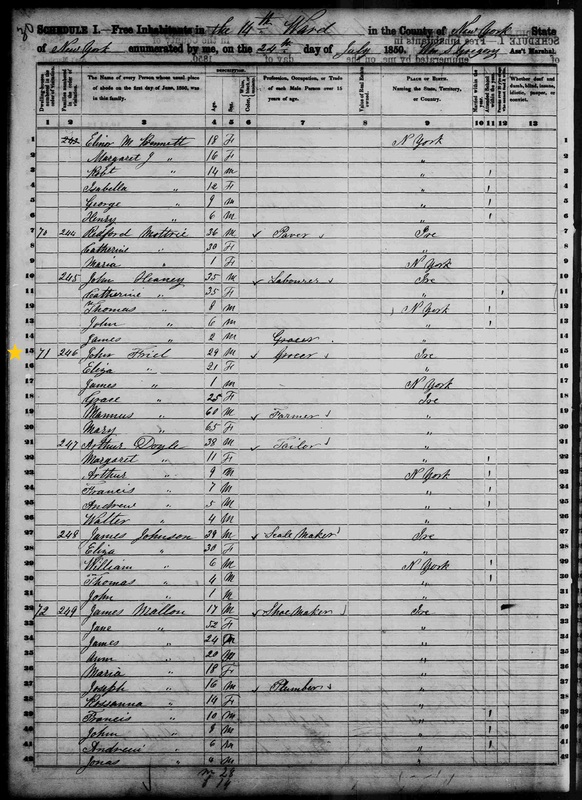 SCHEDULE I.—Free Inhabitants in the 14th Ward in the County of New York State
of New York enumerated by me, on the 24th day of July 1850. Wm S Gregory Ass't Marshal.
DESCRIPTION.
The Name of every Person whose usual place of abode on the first day of June, 1850, was in this family.
Age
Sex
Profession, Occupation, or Trade of each Male Person over 15 years of age.
Value of Real Estate owned.
PLACE OF BIRTH. Naming the State, Territory, or Country.
Whether deaf and dumb, blind, insane, idiotic, pauper, or convict.
1 2 3 4 5 6 7 8 9 10 11 12 13
1 243 Elinor M Bennett 18 F N York
2 Margaret J " 16 F "
3 Robt " 14 m " 1
4 Isabella " 12 F " 1
5 George " 9 m " 1
6 Henry " 6 m " 1
7 70 244 Redford 36 m Paver Ire
8 Catherine " 30 F "
9 Maria " 1 F N York
10 245 John Heaney 35 m Labourer Ire
11 Catherine " 35 F " 1
12 Thomas " 8 m N York 1
13 John " 6 m " 1
14 James " 2 m Grocer "
15 71 246 John Friel 29 m Grocer Ire
16 Eliza " 21 F "
17 James " 1 m N York
18 Grace " 25 F Ire
19 Mannus " 60 m Farmer "
20 Mary " 65 F "
21 247 Arthur Doyle 38 m Tailor "
22 Margaret " 11 F " 1
23 Arthur " 9 m N York 1
24 Francis " 7 m " 1
25 Andrew " 5 m " 1
26 Walter " 4 m "
27 248 James Johnson 39 m Scale Maker Ire
28 Eliza " 30 F "
29 William " 6 m N York 1
30 Thomas " 4 m " 1
31 John " 1 m "
32 72 249 James Mallon 17 m Shoe Maker Ire
33 Jane " 52 F "
34 James " 24 m "
35 Ann " 20 "
36 Maria " 18 F "
37 Joseph " 16 m Plumber "
38 Rossanna " 14 F "
39 Francis " 10 m " 1
40 John " 8 m " 1
41 Andrew " 6 m " 1
42 Jonas " m "